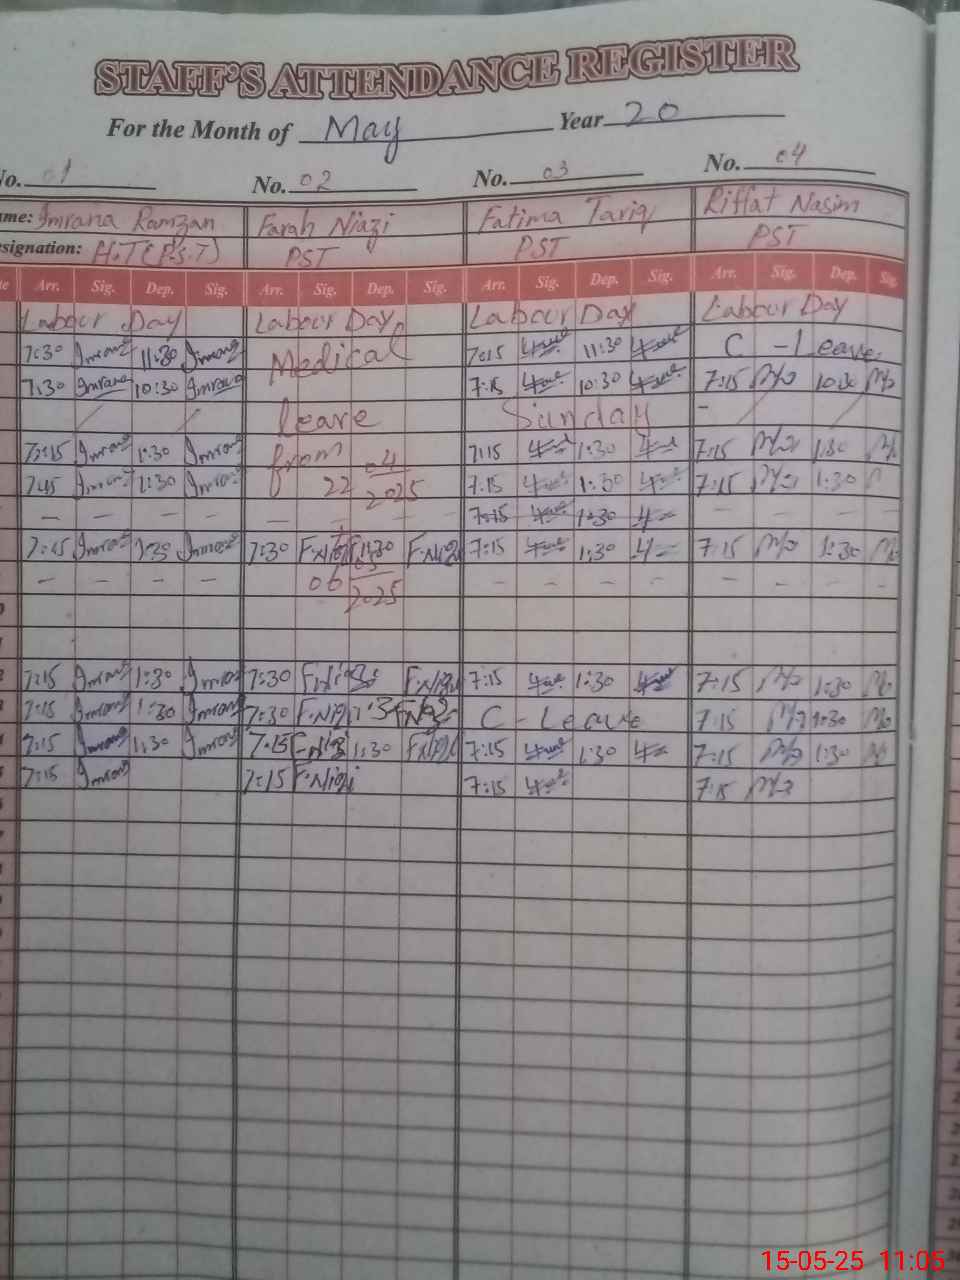 STAFF'S ATTENDANCE REGISTER
For the Month of May Year 20
No. 01 No. 02 No. 03 No. 04
ame: Imrana Ramzan Farah Niazi Fatima Tariq Riffat Nasim
signation: H.T (P.S.T) PST PST PST
te Arr. Sig. Dep. Sig. Arr. Sig. Dep. Sig. Arr. Sig. Dep. Sig. Arr. Sig. Dep. Sig.
Labour Day Labour Day Labour Day Labour Day
7:30 Imrana 11:30 Imrana Medical 7:15 11:30 C - Leave
7:30 Imrana 10:30 Imrana 7:15 10:30 7:15 10:30
leave Sunday
7:15 Imrana 1:30 Imrana from 04 7:15 1:30 7:15 1:30
7:15 Imrana 1:30 Imrana 22 2025 7:15 1:30 7:15 1:30
7:15 1:30
7:15 Imrana 1:30 Imrana 7:30 F.Niazi 11:30 F.Niazi 7:15 1:30 7:15 1:30
06 2025
7:15 Imrana 1:30 Imrana 7:30 F.Niazi F.Niazi 7:15 1:30 7:15 1:30
7:15 Imrana 1:30 Imrana 7:30 F.Niazi 1:3 F.Niazi C - Leave 7:15 1:30
7:15 Imrana 1:30 Imrana 7:15 F.Niazi 1:30 F.Niazi 7:15 1:30 7:15 1:30
7:15 Imrana 7:15 F.Niazi 7:15 7:15
15-05-25 11:05